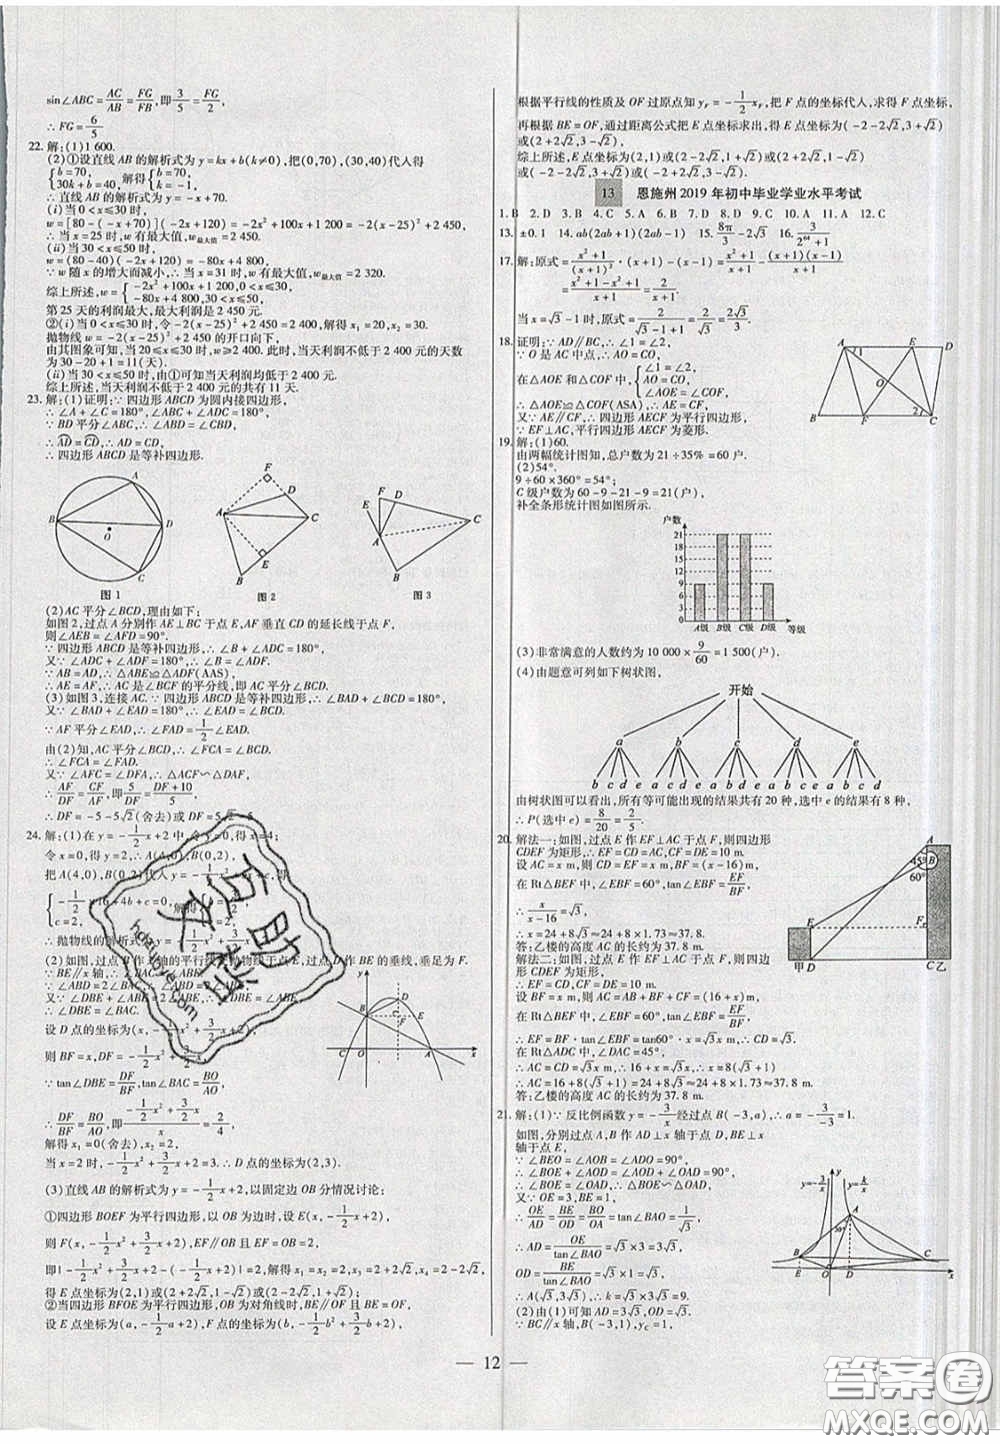 sin∠ABC=AC/AB=FG/FB,即3/5=FG/2,
∴FG=6/5
22.解:(1)1 600.
(2)①设直线AB的解析式为y=kx+b(k≠0),把(0,70),(30,40)代入得
{b=70, 30k+b=40, 解得{b=70, k=-1,
∴直线AB的解析式为y=-x+70.
(i)当0<x≤30时,
w=[80-(-x+70)](-2x+120)=-2x²+100x+1 200=-2(x-25)²+2 450,
∴当x=25时,w有最大值,w最大值=2 450.
(ii)当30<x≤50时,
w=(80-40)(-2x+120)=-80x+4 800,
∵w随x的增大而减小,∴当x=31时,w有最大值=2 320.
综上所述,w={-2x²+100x+1 200, -80x+4 800,
第25天的利润最大,最大利润是2 450元.
②(i)当0<x≤30时,令-2(x-25)²+2 450=2 400,解得x₁=20,x₂=30,
抛物线w=-2(x-25)²+2 450的开口向下,
由其图象可知,当20≤x≤30时,w≥2 400.此时,当天利润不低于2 400元的天数
为30-20+1=11(天).
(ii)当30<x≤50时,由①可知当天利润均低于2 400元.
综上所述,当天利润不低于2 400元的共有11天.
23.解:(1)证明:∵四边形ABCD为圆内接四边形,
∴∠A+∠C=180°,∠ABC+∠ADC=180°.
∵BD平分∠ABC,∴∠ABD=∠CBD,
∴AD=CD,∴AD=CD,
∴四边形ABCD是等补四边形.
A B D O C
图1
F D A C E B
图2
E F D C A B
图3
(2)AC平分∠BCD,理由如下:
如图2,过点A分别作AE⊥BC于点E,AF垂直CD的延长线于点F,
则∠AEB=∠AFD=90°.
∵四边形ABCD是等补四边形,∴∠B+∠ADC=180°.
又∵∠ADC+∠ADF=180°,∴∠B=∠ADF.
∵AB=AD,∴△ABE≌△ADF(AAS),
∴AE=AF,∴AC是∠BCF的平分线,即AC平分∠BCD.
(3)如图3,连接AC.∵四边形ABCD是等补四边形,∴∠BAD+∠BCD=180°,
又∵∠BAD+∠EAD=180°,∴∠EAD=∠BCD.
∵AF平分∠EAD,∴∠FAD=1/2∠EAD.
由(2)知,AC平分∠BCD,∴∠FCA=1/2∠BCD.
∴∠FCA=∠FAD.
又∵∠AFC=∠DFA,∴△ACF∽△DAF,
∴AF/DF=CF/AF,即5/DF=(DF+10)/5,
∴DF=-5-5√2(舍去)或DF=5√2-5.
24.解:(1)在y=-1/2x+2中,令y=0,得x=4;
令x=0,得y=2,∴A(4,0),B(0,2),
把A(4,0),B(0,2)代入y=-1/2x²+bx+c,得
{-1/2×16+4b+c=0, c=2, 解得
∴抛物线的解析式为y=-1/2x²+3/2x+2.
(2)如图,过点B作x轴的平行线交抛物线于点E,过点D作BE的垂线,垂足为F.
∵BE∥x轴,∴∠BAC=∠ABE.
∵∠ABD=2∠BAC,∴∠ABD=2∠ABE.
又∵∠ABD=∠DBE+∠ABE,
∴∠DBE=∠BAC.
设D点的坐标为(x,-1/2x²+3/2x+2),
则BF=x,DF=-1/2x²+3/2x.
∵tan∠DBE=DF/BF,tan∠BAC=BO/AO,
∴DF/BF=BO/AO,即(-1/2x²+3/2x)/x=2/4,
解得x₁=0(舍去),x₂=2.
当x=2时,-1/2x²+3/2x+2=3,∴D点的坐标为(2,3).
(3)直线AB的解析式为y=-1/2x+2,以固定边OB分情况讨论;
①四边形BOEF为平行四边形,以OB为边时,设E(x,-1/2x+2),
则F(x,-1/2x²+3/2x+2),∴OB与EF平行且OB=EF=2,
即|-1/2x²+3/2x+2-(-1/2x+2)|=2,解得x₁=x₂=2,x₃=2+2√2,x₄=2-2√2,
得E点坐标为(2,1)或(2+2√2,1-√2)或(2-2√2,1+√2);
②当四边形BFOE为平行四边形,OB为对角线时,BE∥OF且BE=OF,
设E点坐标为(a,-1/2a+2),F点的坐标为(b,-1/2b²+3/2b+2),
根据平行线的性质及OF过原点知y_F=-1/2x_F,把F点的坐标代入,求得F点坐标,
再根据BE=OF,通过距离公式把E点坐标求出,得E点坐标为(-2-2√2,3+√2)
或(2+2√2,3-√2),
综上所述,E点坐标为(2,1)或(2-2√2,1+√2)或(2+2√2,1-√2)
或(-2-2√2,3+√2)或(-2+2√2,3-√2).
13 恩施州2019年初中毕业学业水平考试
1.B 2.D 3.B 4.C 5.C 6.D 7.D 8.C 9.D 10.A 11.A 12.D
13.±0.1 14.ab(2ab+1)(2ab-1) 15.8π/3-2√3 16.3/(2⁶⁴+1)
17.解:原式=(x²+1)/(x+1)²·(x+1)-(x-1)=(x²+1)/(x+1)-(x+1)(x-1)/(x+1)
=(x²+1-x²+1)/(x+1)=2/(x+1).
当x=√3-1时,原式=2/(√3-1+1)=2/√3=2√3/3.
18.证明:∵AD∥BC,∴∠1=∠2,
∵O是AC中点,∴AO=CO,
在△AOE和△COF中,{∠1=∠2, AO=CO, ∠AOE=∠COF,
∴△AOE≌△COF(ASA),∴AE=CF.
又∵AE∥CF,∴四边形AECF是平行四边形.
∵EF⊥AC,平行四边形AECF为菱形.
A E D 1 O 2 B F C
19.解:(1)60.
由两幅统计图知,总户数为21÷35%=60(户).
(2)54°.
9÷60×360°=54°;
C级户数为60-9-21-9=21(户),
补全条形统计图如图所示.
户数
21
18
15
12
9
6
3
0
A级 B级 C级 D级 等级
(3)非常满意的人数约为10 000×9/60=1 500(户).
(4)由题意可列如下树状图,
开始
a b c d e
b c d e a c d e a b d e a b c e a b c d
由树状图可以看出,所有等可能出现的结果共有20种,选中e的结果有8种,
∴P(选中e)=8/20=2/5.
20.解法一:如图,过点E作EF⊥AC于点F,则四边形
CDEF为矩形,∴EF=CD,CF=DE=10 m.
设AC=x m,则CD=EF=x m,BF=(x-16)m,
在Rt△BEF中,∠EBF=60°,tan∠EBF=EF/BF,
∴x/(x-16)=√3,
∴x=24+8√3≈24+8×1.732≈37.8.
答:乙楼的高度AC的长约为37.8 m.
解法二:如图,过点E作EF⊥AC于点F,则四边
形CDEF为矩形.
∴EF=CD,CF=DE=10 m.
设BF=x m,则AC=AB+BF+CF=(16+x)m,
在Rt△BEF中,∠EBF=60°,tan∠EBF=EF/BF,
∴EF=BF·tan∠EBF=x·tan60°=√3x m.
在Rt△ADC中,∠ADC=45°,
∴CD=AC,∴16+x=√3x,∴x=8(√3+1),
∴AC=16+8(√3+1)=24+8√3≈24+8×1.732≈37.8 m.
答:乙楼的高度AC的长约为37.8 m.
A 45° B 60° E F 甲 D C 乙
21.解:(1)∵反比例函数y=-3/x经过点B(-3,a),∴a=-3/-3=1.
如图,分别过点A,B作AD⊥x轴于点D,BE⊥x
轴于点E,
∴∠BEO=∠AOB=∠ADO=90°,
∴∠BOE+∠AOD=∠AOD+∠OAD=90°,
∴∠BOE=∠OAD,∴△BOE∽△OAD.
又∵OE=3,BE=1,
∴OE/AD=BE/OD=BO/OA=tan∠BAO=1/√3,
∴AD=OE/tan∠BAO=√3×3=3√3,
OD=BE/tan∠BAO=√3×1=√3,
∴A(√3,3√3),∴k=√3×3√3=9.
(2)由(1)可知AD=3√3,
∵BC∥x轴,B(-3,1),y_C=1,
y=-3/x y y=k/x A 30° B C E O D x
12
答案圈
MXQE.COM